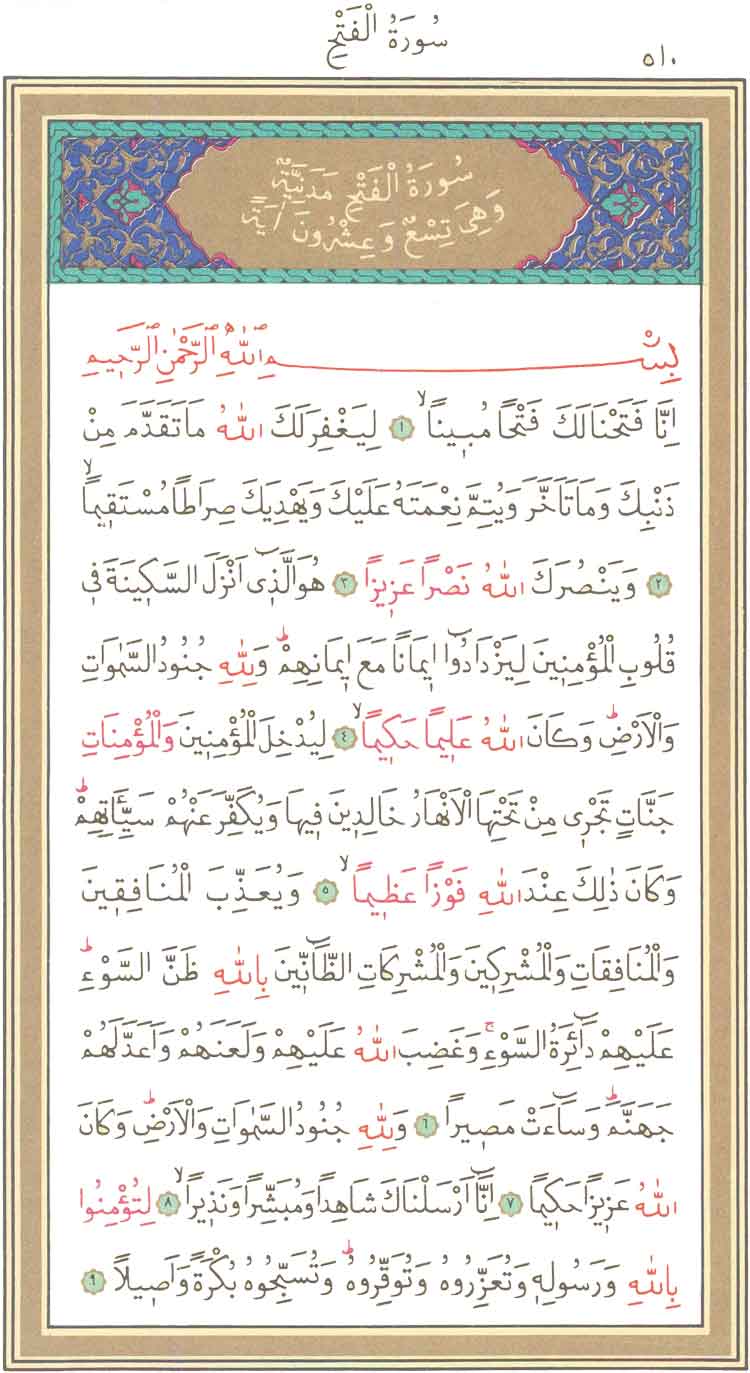 سُورَةُ الْفَتْحِ
٥١٠
سُورَةُ الْفَتْحِ مَدَنِيَّةٌ
وَهِيَ تِسْعٌ وَعِشْرُونَ اٰيَةً
بِسْمِ اللّٰهِ الرَّحْمٰنِ الرَّحِيمِ
اِنَّا فَتَحْنَا لَكَ فَتْحًا مُبِينًاۙ ١ لِيَغْفِرَ لَكَ اللّٰهُ مَا تَقَدَّمَ مِنْ
ذَنْبِكَ وَمَا تَاَخَّرَ وَيُتِمَّ نِعْمَتَهُ عَلَيْكَ وَيَهْدِيَكَ صِرَاطًا مُسْتَقِيمًاۙ
٢ وَيَنْصُرَكَ اللّٰهُ نَصْرًا عَزِيزًا ٣ هُوَ الَّذِٓي اَنْزَلَ السَّكِينَةَ فِي
قُلُوبِ الْمُؤْمِنِينَ لِيَزْدَادُٓوا اِيمَانًا مَعَ اِيمَانِهِمْۜ وَلِلّٰهِ جُنُودُ السَّمٰوَاتِ
وَالْاَرْضِۜ وَكَانَ اللّٰهُ عَلِيمًا حَكِيمًاۙ ٤ لِيُدْخِلَ الْمُؤْمِنِينَ وَالْمُؤْمِنَاتِ
جَنَّاتٍ تَجْرِي مِنْ تَحْتِهَا الْاَنْهَارُ خَالِدِينَ فِيهَا وَيُكَفِّرَ عَنْهُمْ سَيِّـَٔاتِهِمْۜ
وَكَانَ ذٰلِكَ عِنْدَ اللّٰهِ فَوْزًا عَظِيمًاۙ ٥ وَيُعَذِّبَ الْمُنَافِقِينَ
وَالْمُنَافِقَاتِ وَالْمُشْرِكِينَ وَالْمُشْرِكَاتِ الظَّٓانِّينَ بِاللّٰهِ ظَنَّ السَّوْءِۜ
عَلَيْهِمْ دَٓائِرَةُ السَّوْءِۚ وَغَضِبَ اللّٰهُ عَلَيْهِمْ وَلَعَنَهُمْ وَاَعَدَّ لَهُمْ
جَهَنَّمَۜ وَسَٓاءَتْ مَصِيرًا ٦ وَلِلّٰهِ جُنُودُ السَّمٰوَاتِ وَالْاَرْضِۜ وَكَانَ
اللّٰهُ عَزِيزًا حَكِيمًا ٧ اِنَّٓا اَرْسَلْنَاكَ شَاهِدًا وَمُبَشِّرًا وَنَذِيرًاۙ ٨ لِتُؤْمِنُوا
بِاللّٰهِ وَرَسُولِهِ وَتُعَزِّرُوهُ وَتُوَقِّرُوهُۜ وَتُسَبِّحُوهُ بُكْرَةً وَاَصِيلًا ٩